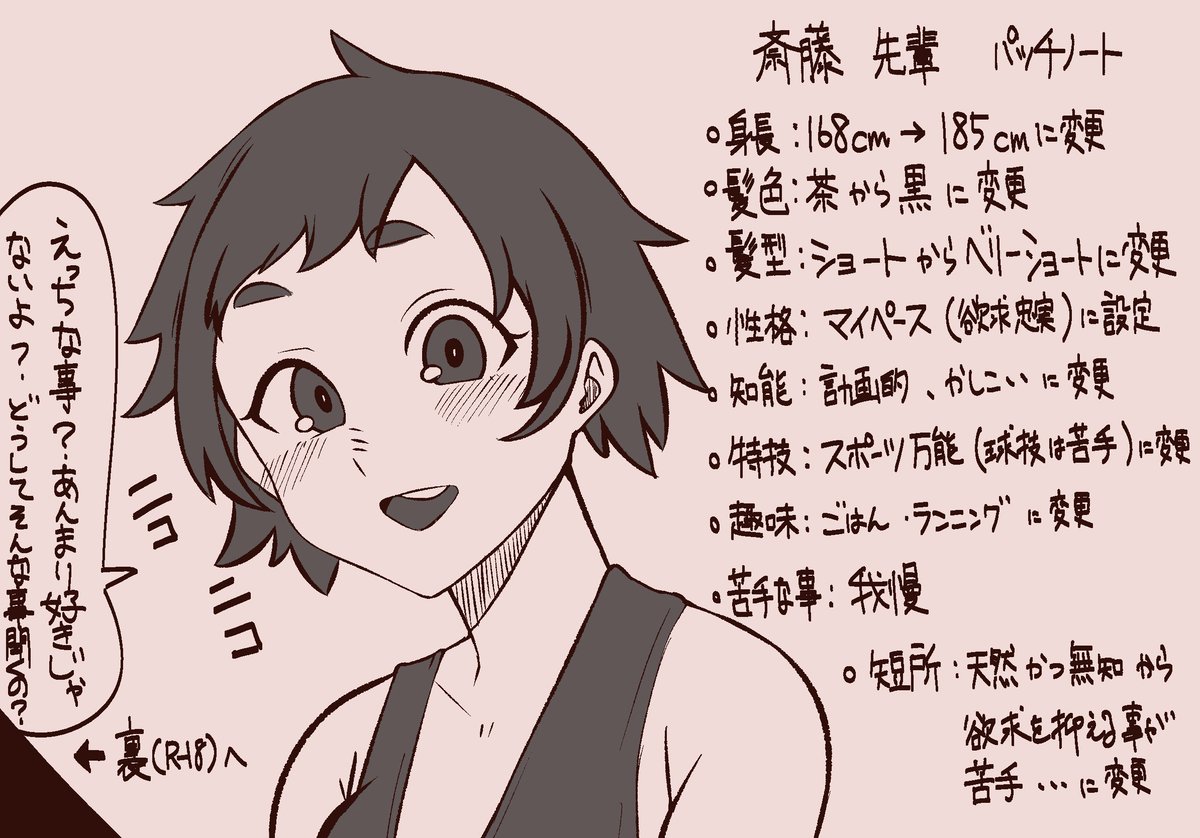 斎藤 先輩 パッチノート
○身長:168cm→185cmに変更
○髪色:茶から黒に変更
○髪型:ショートからベリーショートに変更
○性格:マイペース(欲求忠実)に設定
○知能:計画的、かしこいに変更
○特技:スポーツ万能(球技は苦手)に変更
○趣味:ごはん・ランニングに変更
○苦手な事:我慢
○短所:天然かつ無知から
欲求を抑える事が
苦手…に変更
えっちな事?あんまり好きじゃ
ないよ?どうしてそんな事聞くの?
ニコ
ニコ
←裏(R-18)へ